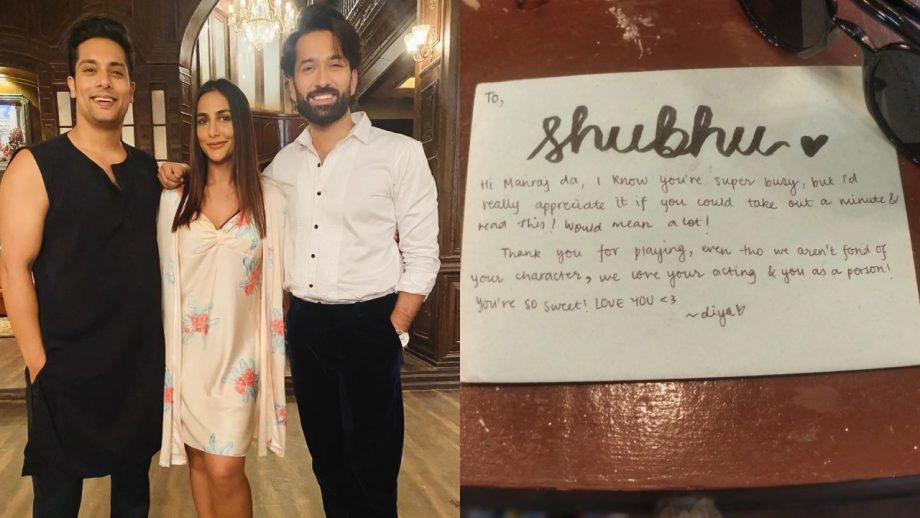 To,
Shubhu ♥
Hi Manraj da, I know you're super busy, but I'd
really appreciate it if you could take out a minute &
read this! Would mean a lot!
Thank you for playing, even tho we aren't fond of
your character, we love your acting & you as a person!
You're so sweet! LOVE YOU <3
~diya♡